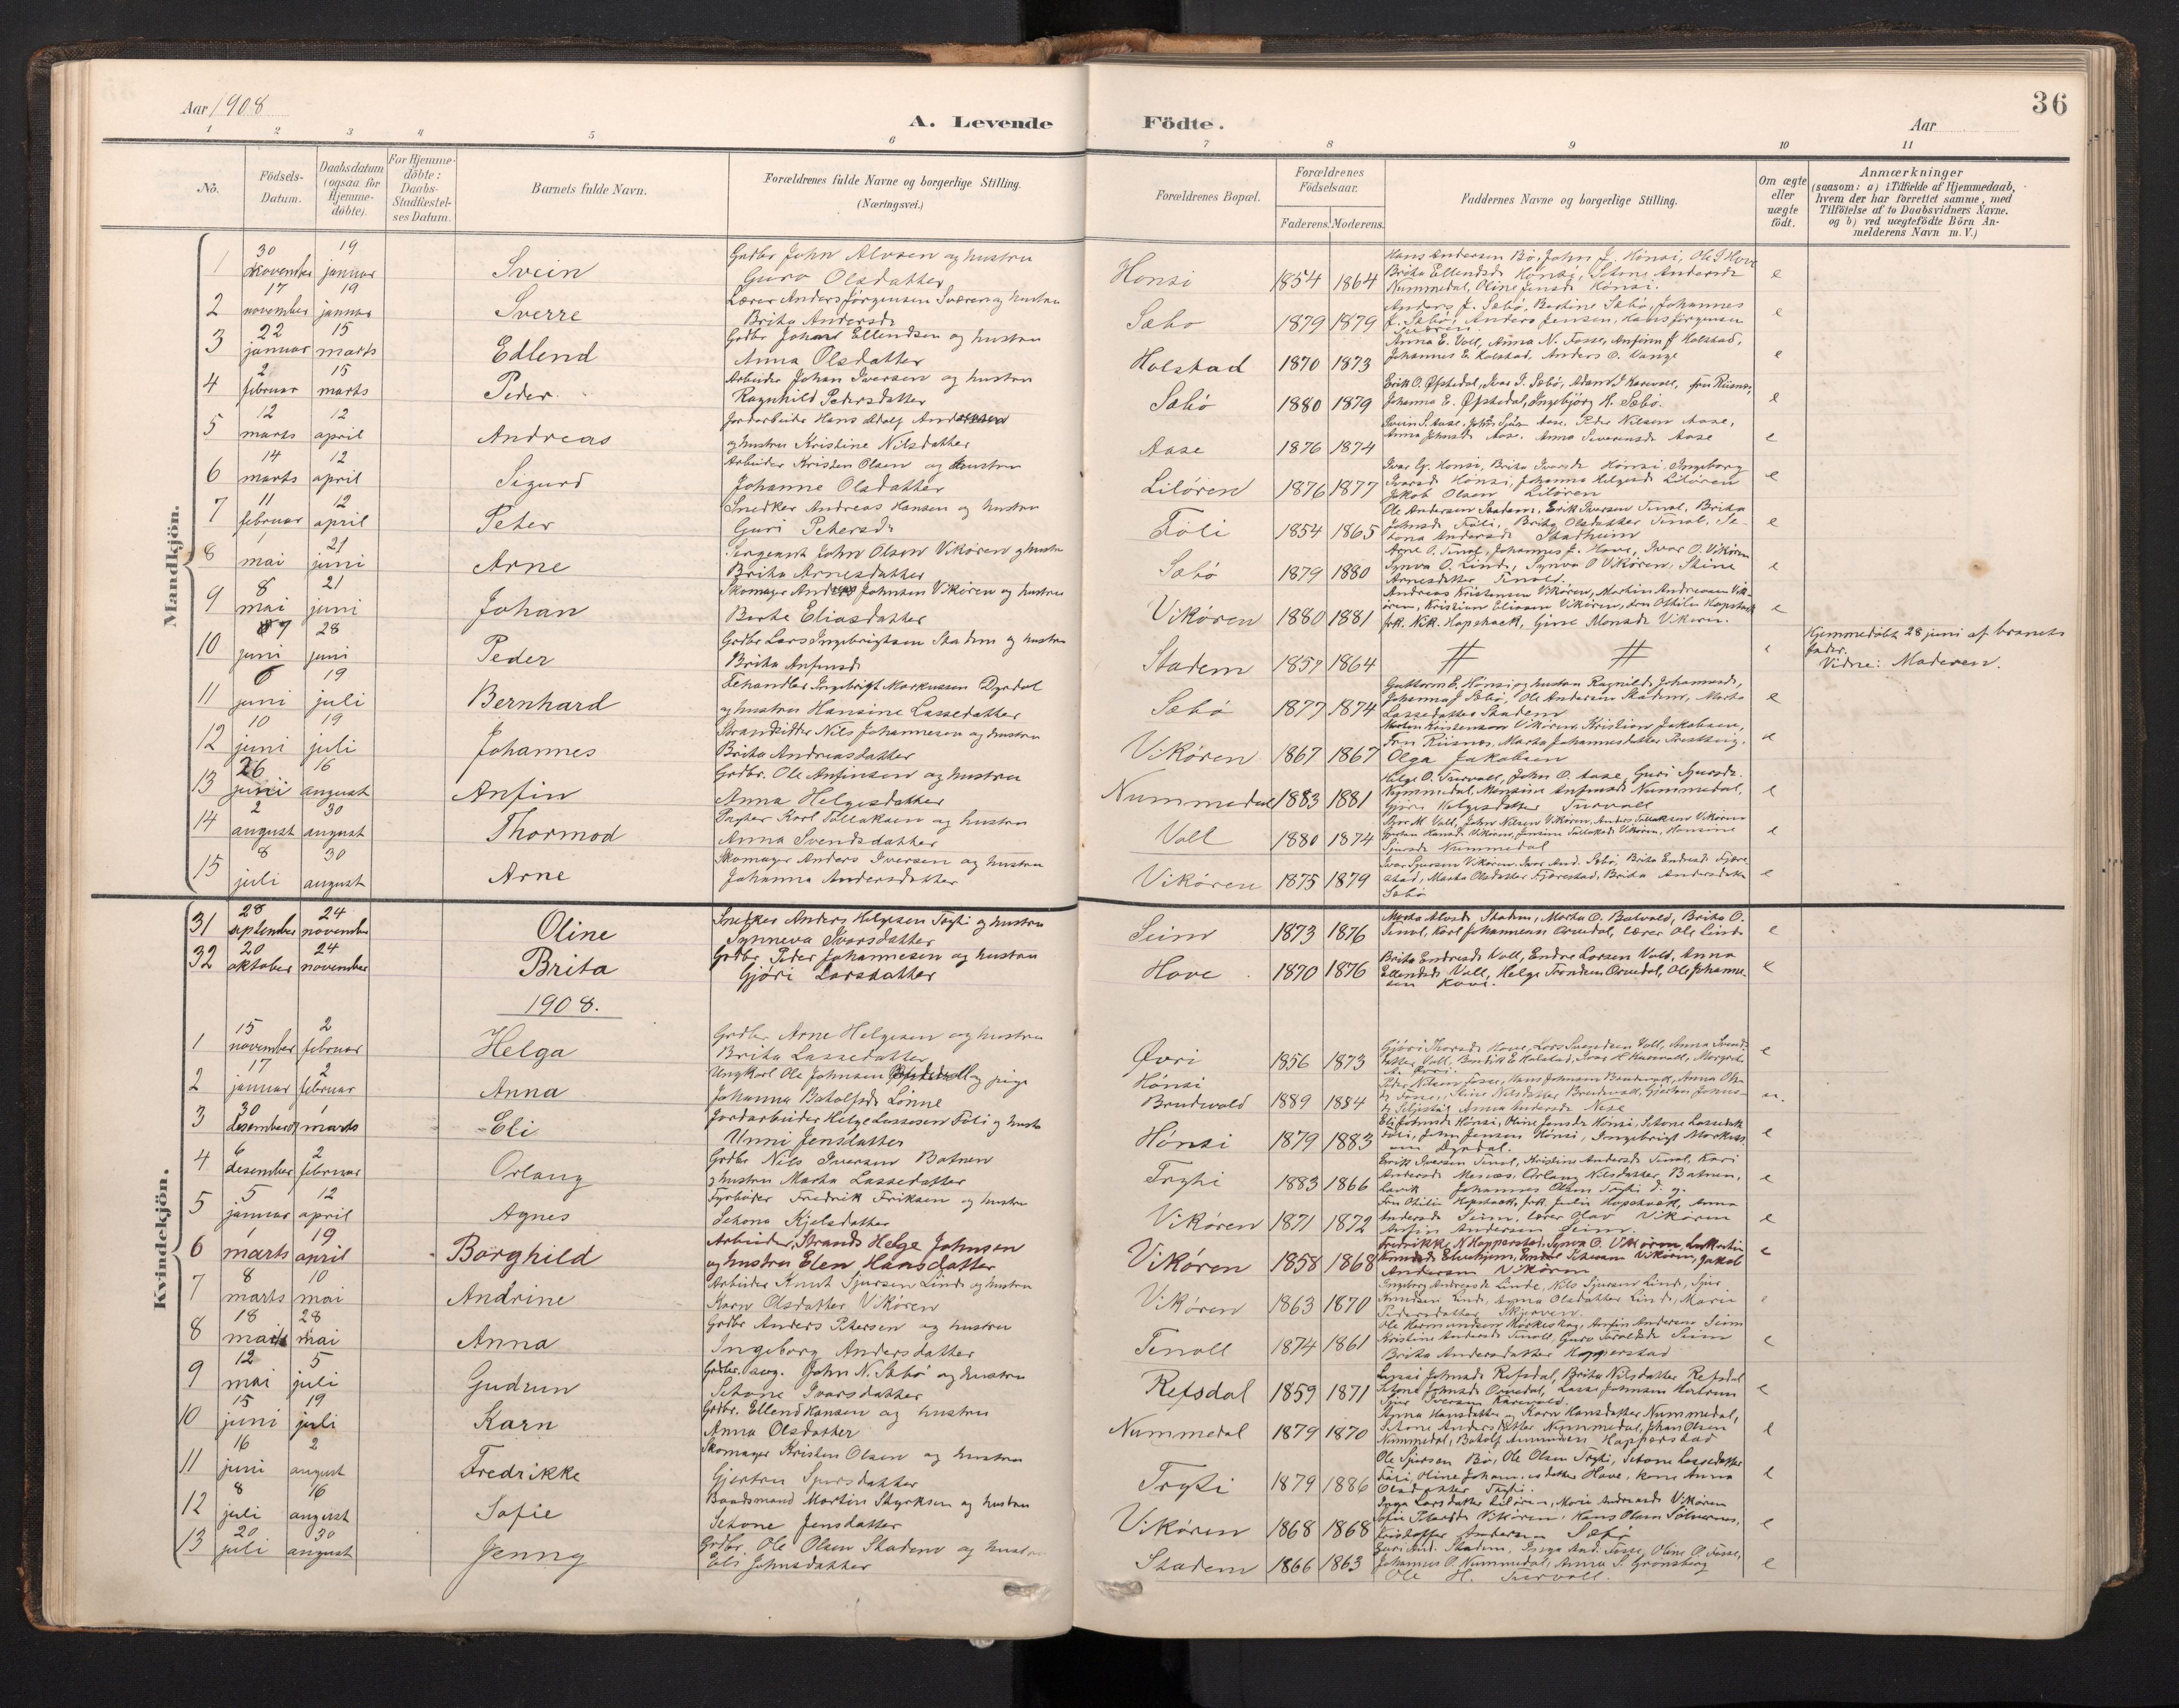 Aar 1908
A. Levende Födte.
Aar
36
1 2 3 4 5 6 7 8 9 10 11
No.
Födsels-Datum.
Daabsdatum (ogsaa for Hjemme-döbte).
For Hjemme-döbte: Daabs-Stadfæstel-ses Datum.
Barnets fulde Navn.
Forældrenes fulde Navne og borgerlige Stilling. (Næringsvei.)
Forældrenes Bopæl.
Forældrenes Födselsaar.
Faderens. Moderens.
Faddernes Navne og borgerlige Stilling.
Om ægte eller uægte födt.
Anmærkninger (saasom: a) i Tilfælde af Hjemmedaab, hvem der har forrettet samme, med Tilföielse af to Daabsvidners Navne. og b) ved uægtefödte Börn An-melderens Navn m. V.)
Mandkjön.
1 30 november 19 januar Svein Grdbr John Alvsen og hustru Guro Olsdatter Hønsi 1854 1864 Hans Andersen Bø, John J. Hønsi, Ole J Hove Brita Ellendsdr Hønsi, Setone Andersdr Nummedal, Oline Jensdr Hønsi. e
2 17 november 19 januar Sverre Lærer Anders Jørgensen Sværen og hustru Brita Andersdr Sæbo 1879 1879 Anders J. Sæbö, Bertine Sæbö, Johannes J. Sæbö, Anders Jensen, Hans Jørgensen Sværen e
3 22 januar 15 marts Edlend Grdbr Johan Ellendsen og hustru Anna Olsdatter Holstad 1870 1873 Anna E. Voll, Anna N. Fosse, Anfinn J Holstad, Johannes E. Holstad, Anders O. Vange e
4 2 februar 15 marts Peder Arbeider Johan Iversen og hustru Ragnhild Pedersdatter Sæbö 1880 1879 Erik O. Øfstedal, Ivar J. Sæbö, Adam J Karevoll, fru Risnes, Johanna E. Øfstedal, Ingebjörg H. Sæbö. e
5 12 marts 12 april Andreas Jordarbeider Hans Adolf Andersen og hustru Kristine Nilsdatter Aase 1876 1874 Svein S. Aase, John Sjurs. Aase, Peder Nilsen Aase, Anna Johnsdr Aase, Anna Severinsdr Aase e
6 14 marts 12 april Sigurd Arbeider Kristen Olsen og hustru Johanne Olsdatter Lilören 1876 1877 Ivar G. Hønsi, Brita Ivarsdr Hønsi, Ingeborg Ivarsdr Hønsi, Johanna Helgesdr Lilören Jakob Olsen Lilören e
7 11 februar 12 april Peter Snedker Andreas Hansen og hustru Guri Petersdr Föli 1854 1865 Ole Andersen Stadem, Erik Iversen Tenol, Brita Johnsdr Föli, Brita Olsdatter Tenol, Se-tona Andersdr Stadheim e
8 1 mai 21 juni Arne Sergeant John Olsen Vikören og hustru Brita Arnesdatter Sæbö 1879 1880 Arne O. Tenol, Johannes J. Hove, Ivar O. Vikören Synva O. Linde, Synva O Vikören, Stine Arnesdatter Tenold. e
9 8 mai 21 juni Johan Skomager Andreas Johnsen Vikören og hustru Berte Eliasdatter Vikören 1880 1881 Andreas Kristensen Vikören, Martin Andreasen Vik-ören, Kristian Eliasen Vikören, fru Othilie Hopstock frk. Nik. Hopstock, Gine Monsdr Vikören. e
10 7 juni 28 juni Peder Grdbr Lars Ingebrigtsen Stadem og hustru Brita Anfinsdr Stadem 1857 1864 # # e Hjemmedøbt 28 juni af barnets fader. Vidne: Moderen.
11 6 juni 19 juli Bernhard Fehandler Ingebrigt Markussen Dyrdal og hustru Hansine Lassedatter Sæbö 1877 1874 Guttorm E. Hønsi og hustru Ragnilde Johannesdr, Johanna J Sæbö, Ole Andersen Stadem, Marta Lassedatter Stadem e
12 10 juni 19 juli Johannes Strandsidder Nils Johannesen og hustru Brita Andreasdatter Vikören 1867 1867 Kristensen Vikören, Kristian Jakobsen, Fru Risnes, Marta Johannesdatter Prestteig, Olga Jakobsen e
13 26 juni 16 august Anfin Grdbr. Ole Anfinsen og hustru Anna Helgesdatter Nummedal 1883 1881 Helge O. Turvoll, John O. Aase, Guri Sjursdr. Nummedal, Monsine Anfinsdr Nummedal, Gjöri Helgesdatter Turvoll e
14 2 august 30 august Thormod Karl Tollaksen og hustru Anna Svendsdatter Voll 1880 1874 M. Voll, John Nilsen Vikören, Anders Tollaksen Vikören Hansdr Vikören, Jensine Tollaksdr Vikören, Hansine Sjursdr Nummedal e
15 8 juli 30 august Arne Skomager Anders Iversen og hustru Johanna Andersdatter Vikören 1875 1879 Ivar Sjursen Vikören, Ivar And. Sæbö, Brita Endresdr Fjære-stad, Marta Olsdatter Fjærestad, Brita Andersdatter Sæbö e
Kvindekjön.
31 28 september 24 november Oline Snedker Anders Helgesen Tryti og hustru Synneva Ivarsdatter Seim 1873 1876 Marta Alvsdr Stadem, Marta O. Bolvold, Brita O. Tenol, Karl Johannesen Orvedal, lærer Ole Linde e
32 20 oktober 24 november Brita Grdbr Peder Johannesen og hustru Gjöri Larsdatter Hove 1870 1876 Brita Endresdr Voll, Endre Larsen Vold, Anna Ellendsdr Voll, Helge Trondsen Orvedal, Ole Johanne-sen Hove. e
1908.
1 15 november 2 februar Helga Grdbr Arne Helgesen og hustru Brita Lassedatter Øvri 1856 1873 Gjöri Thorsdr Hove, Lars Svendsen Voll, Anna Svends-datter Voll, Bendik E Holstad, Ivar H Karevoll, Margreta A. Øvri. e
2 17 januar 2 februar Anna Ungkarl Ole Johnsen og pige Johanna Botolfsdr Lønne Hönsi Brudevold 1889 1884 Peder Nilsen Fosse, Hans Johnsen Brudevold, Anna Ols-dr Fosse, Stine Nilsdatter Brudevold, Gjertru Johns-dr Seljestøl, Anna Andersdr Nese u.
3 30 desember 07 1 marts Eli Jordarbeider Helge Lassesen Föli og hustru Unni Jensdatter Hönsi 1879 1883 Eli Johnsdr Hönsi, Oline Jensdr Hönsi, Setone Lassedatter Föli, John Jensen Hönsi, Ingebrigt Markuss-en Dyrdal. e
4 6 desember 2 februar Orlaug Grdbr Nils Iversen Botnen og hustru Marta Lassedatter Tryti 1883 1866 Erik Iversen Tenol, Kristine Andersdr Tenol, Kari Andersdr Menæs, Orlaug Nilsdatter Botnen, Lavik Johannes Olsen Tryti d. y. e
5 5 januar 12 april Agnes Fyrböder Fredrik Eriksen og hustru Setona Kjelsdatter Vikören 1871 1872 Fru Othilie Hopstock, frk. Julie Hopstock, Anna Andersdr Seim, lærer Olav Vikören Anfin Andersen Seim. e
6 1 marts 19 april Borghild Arbeider, Strands. Helge Johnsen og hustru Elen Hansdatter Vikören 1858 1868 Fredrikke N Hopperstad, Synva O. Vikören, Knutsdr Elvehjem, Iversen Vikören, Jakob Andersen Vikören e
7 8 marts 10 mai Andrine Arbeider Knut Sjursen Linde og hustru Karn Olsdatter Vikören Vikören 1863 1870 Ingeborg Andreasdr Linde, Nils Sjursen Linde, Sjur Knudsen Linde, Anna Olsdatter Linde, Marie Pedersdatter Skjerven. e
8 18 marts 28 mai Anna Grdbr Anders Petersen og hustru Ingeborg Andersdatter Tenoll 1874 1861 Ole Hermundsen Mörkeskog, Anfin Andersen Seim Kristine Andersdr Tenoll, Guro Seim Brita Andersdatter Hopperstad e
9 12 mai 5 juli Gudrun Grdbr. aug. John N. Sæbö og hustru Setone Ivarsdatter Refsdal 1859 1871 Johnsdr Refsdal, Brita Nilsdatter Refsdal Setone Johnsdr Orvedal, Lasse Johnsen Sjur Iversen Karevold. e
10 15 juni 19 juli Karn Grdbr. Ellend Hansen og hustru Anna Olsdatter Nummedal 1879 1870 Anna Hansdatter og Karn Hansdatter Nummedal, Setone Andersdatter Nummedal, Johan Olsen Nummedal, Botolf Hopperstad e
11 16 juni 2 august Fredrikke Skomager Kristen Olsen og hustru Gjertru Sjursdatter Tryti 1879 1886 Ole Sjursen Bö, Ole Olsen Tryti, Setone Lassedatter Föli, Oline Johannesdatter Hove, kone Anna Olsdatter Tryti. e
12 8 juli 16 august Sofie Baadsmand Martin Styrksen og hustru Setone Jensdatter Vikören 1868 1868 Inga Larsdatter Lilören, Marie Andreasdr Vikören Sofie Petersdr Vikören, Hans Olsen Solvernes, Kristoffer Andersen Sæbö e
13 20 juli 30 august Jenny Grdbr. Ole Olsen Stadem og hustru Eli Johnsdatter Stadem 1866 1863 Guri And. Stadem, Inga And. Fosse, Oline O. Fosse, Johannes O. Nummedal, Anna S. Grönsberg Ole H. Turvoll. e